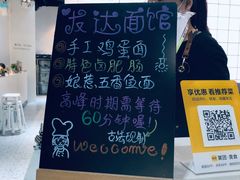 发达面馆
①手工鸡蛋面
②特色卤肥肠
③娘惹五香鱼面
高峰时期需等待
60分钟喔!
Welcome!
享优惠 看推荐菜
美团·美食